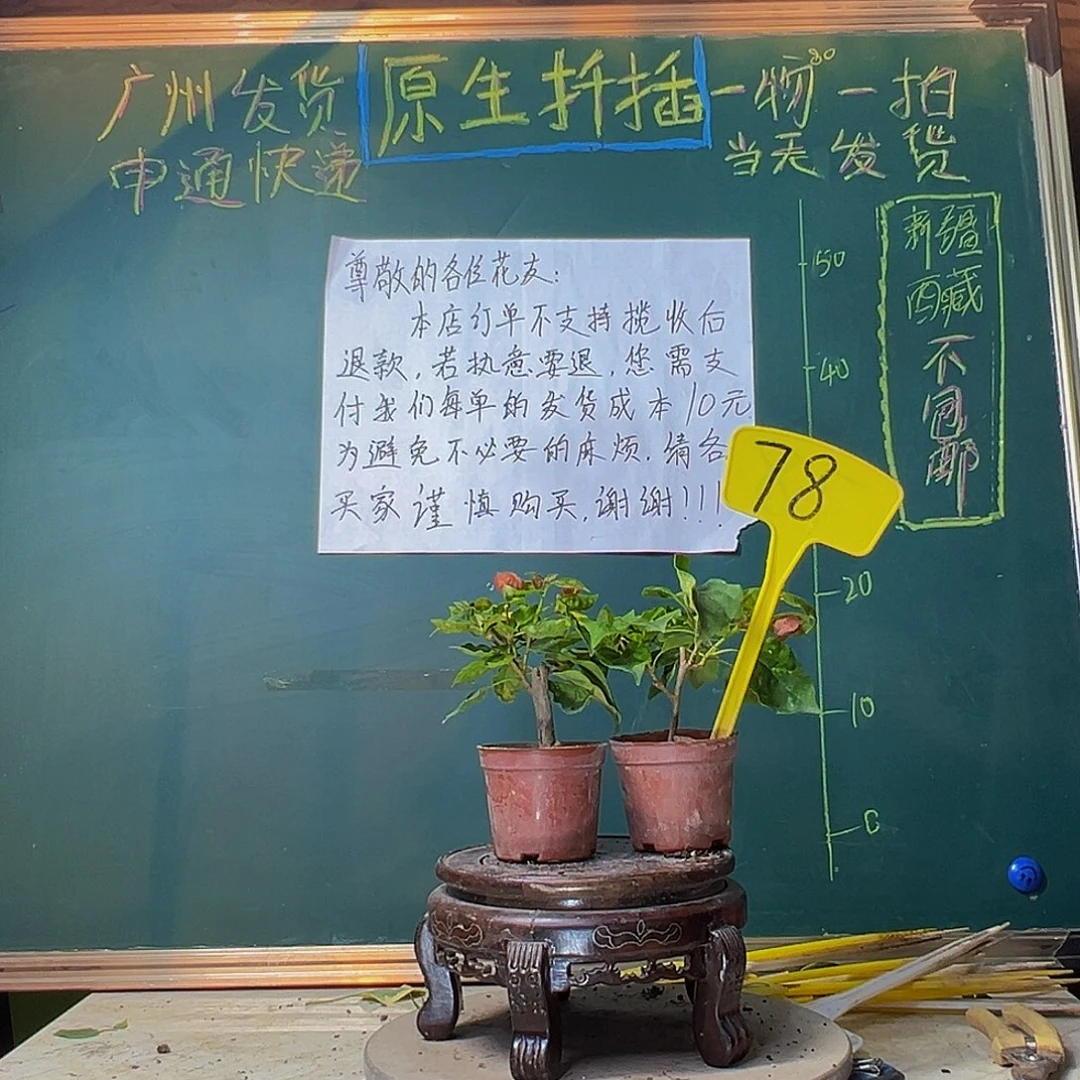 广州发货
原生扦插
一物一拍
申通快递
当天发货
尊敬的各位花友:
本店订单不支持揽收后
退款,若执意要退,您需支
付我们每单的发货成本10元
为避免不必要的麻烦.请各
买家谨慎购买,谢谢!!!
78
50
40
20
10
0
新疆
西藏
不
包
邮